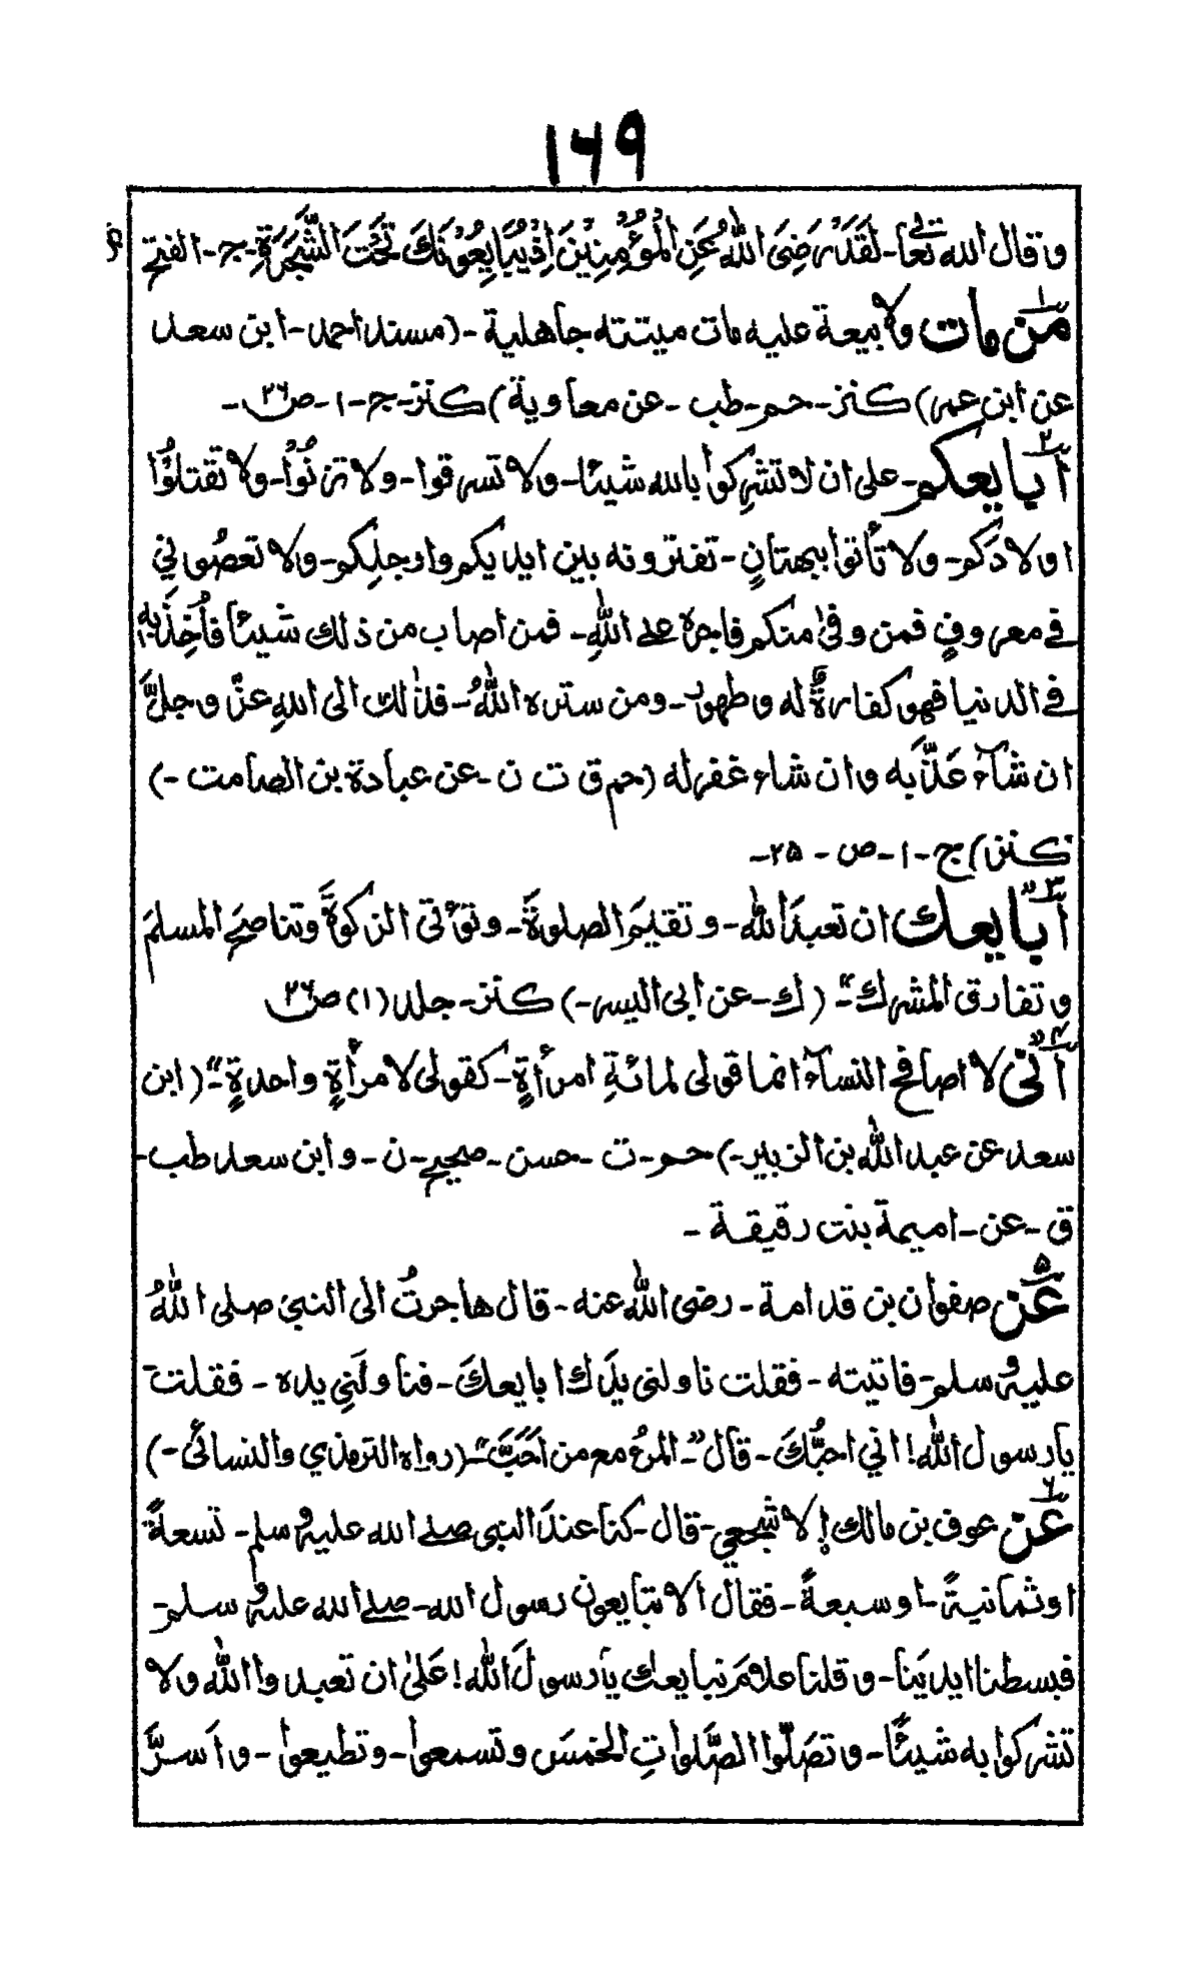 ۱۶۹
وقال الله تعا۔ لَقَدْ رَضِیَ اللّٰهُ عَنِ الْمُؤْمِنِیْنَ اِذْ یُبَایِعُوْنَكَ تَحْتَ الشَّجَرَةِ۔ ج۔ الفتح
۱ مَن مات ولا بیعة علیه مات میتته جاهلیة ۔ (مسند احمد۔ ابن سعد
عن ابن عمر) کنز۔ حم۔ طب ۔ عن معاویة) کنز۔ ج۔ ۱۔ ص ۲۶۔
۲ اُبایعکم۔ علی ان لا تشرِکوا بالله شیئا۔ ولا تسرقوا۔ ولا تزنُوْا۔ ولا تقتلُوْا
اولادَکم۔ ولا تأتوا ببهتانٍ۔ تفترونه بین ایدیکم وارجلِکم۔ ولا تعصُونی
فی معروفٍ فمن وفیٰ منکم فاجره علی اللّٰهِ۔ فمن اصاب من ذلك شیئاً فاُخِذَ بِهٖ
فی الدنیا فهو کفارةٌ له وطهور۔ ومن ستره اللّٰهُ۔ فذٰلك الی اللهِ عزّ وجلَّ
ان شآء عَذَّبَه وان شاء غفرله (حم ق ت ن ۔ عن عبادة بن الصامت ۔)
کنز) ج۔ ۱۔ ص ۔ ۲۵۔
۳ اُبایعك ان تعبدَ اللّٰه۔ وتقیمَ الصلوةَ۔ وتؤتی الزکوةَ وتناصحَ المسلمَ
وتفارق المشرك"۔ (ك۔ عن ابی الیسر۔) کنز۔ جلد (۱) ص ۲۶
۴ "اِنّی لا اصافح النسآء انما قولی لمائةِ امرأةٍ۔ کقولی لامرأةٍ واحدةٍ"۔ (ابن
سعد عن عبد اللّٰه بن الزبیر۔) حم۔ ت ۔ حسن ۔ صحیح۔ ن۔ وابن سعد طب۔
ق۔ عن۔ امیمة بنت رقیقة ۔
۵ عَن صفوان بن قدامة ۔ رضی اللّٰه عنه ۔ قال هاجرتُ الی النبی صلی اللّٰهُ
علیه وسلم۔ فاتیته ۔ فقلت ناولنی یدَك ابایعكَ۔ فناولَنِی یده ۔ فقلت
یا رسول اللّٰه! انی احبُّكَ۔ قال"۔ المرءُ مع من اَحَبَّ"۔ (رواه الترمذی والنسائی ۔)
۶ عَن عوف بن مالك الاشجعی۔ قال۔ کنا عندَ النبی صلی الله علیه وسلم۔ تسعةً
او ثمانیةً۔ او سبعةً۔ فقال الا تبایعون رسول الله۔ صلی الله علیه وسلم۔
فبسطنا ایدیَنا۔ وقلنا علامَ نبایعك یا رسولَ اللّٰه! عَلیٰ ان تعبدوا اللّٰه ولا
تشرکوا به شیئًا۔ وتصَلّوا الصَّلواتِ الخمسَ وتسمعوا۔ وتطیعوا ۔ واَسرَّ